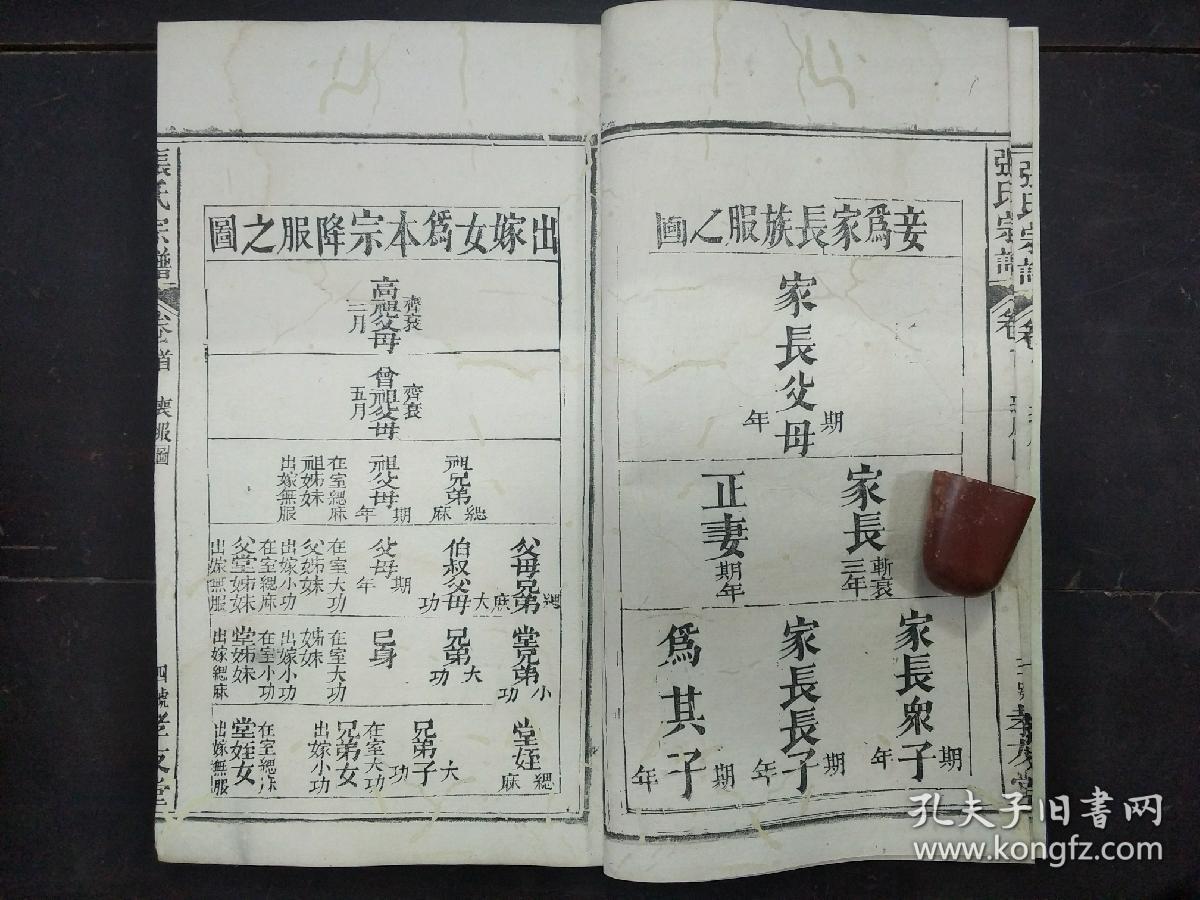 張氏宗譜
妾爲家長族服之圖
家長父母
期年
家長
斬衰三年
正妻
期年
家長衆子
期年
家長長子
期年
爲其子
期年
出嫁女爲本宗降服之圖
高祖父母
齊衰
三月
曾祖父母
齊衰
五月
祖兄弟
緦麻
祖父母
期年
在室緦麻
祖姊妹
出嫁無服
父母兄弟
緦麻
伯叔父母
大功
父母
期年
在室大功
父姊妹
出嫁小功
在室緦麻
父堂姊妹
出嫁無服
堂兄弟
小功
兄弟
大功
己身
在室大功
姊妹
出嫁小功
在室小功
堂姊妹
出嫁緦麻
堂姪
緦麻
兄弟子
大功
在室大功
兄弟女
出嫁小功
在室緦麻
堂姪女
出嫁無服
張氏宗譜
卷首
四號
孝友堂
孔夫子旧书网
www.kongfz.com